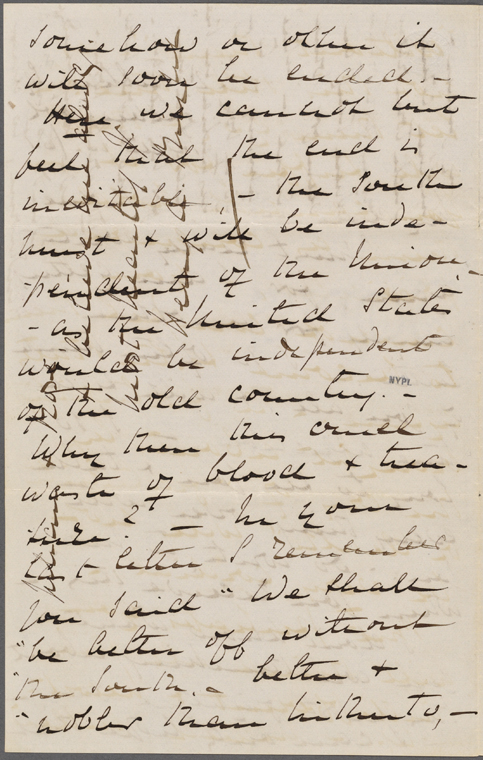 somehow or other it
will soon be ended. –
Here we cannot but
feel that the end is
inevitable, – the South
must & will be inde-
pendent of the Union –
– as the United States
would be independent
of the old country. –
Why then this cruel
waste of blood & trea-
sure? – In your
last letter I remember
you said "We shall
"be better off without
"the South. – better &
"nobler than hitherto, –
NYPL